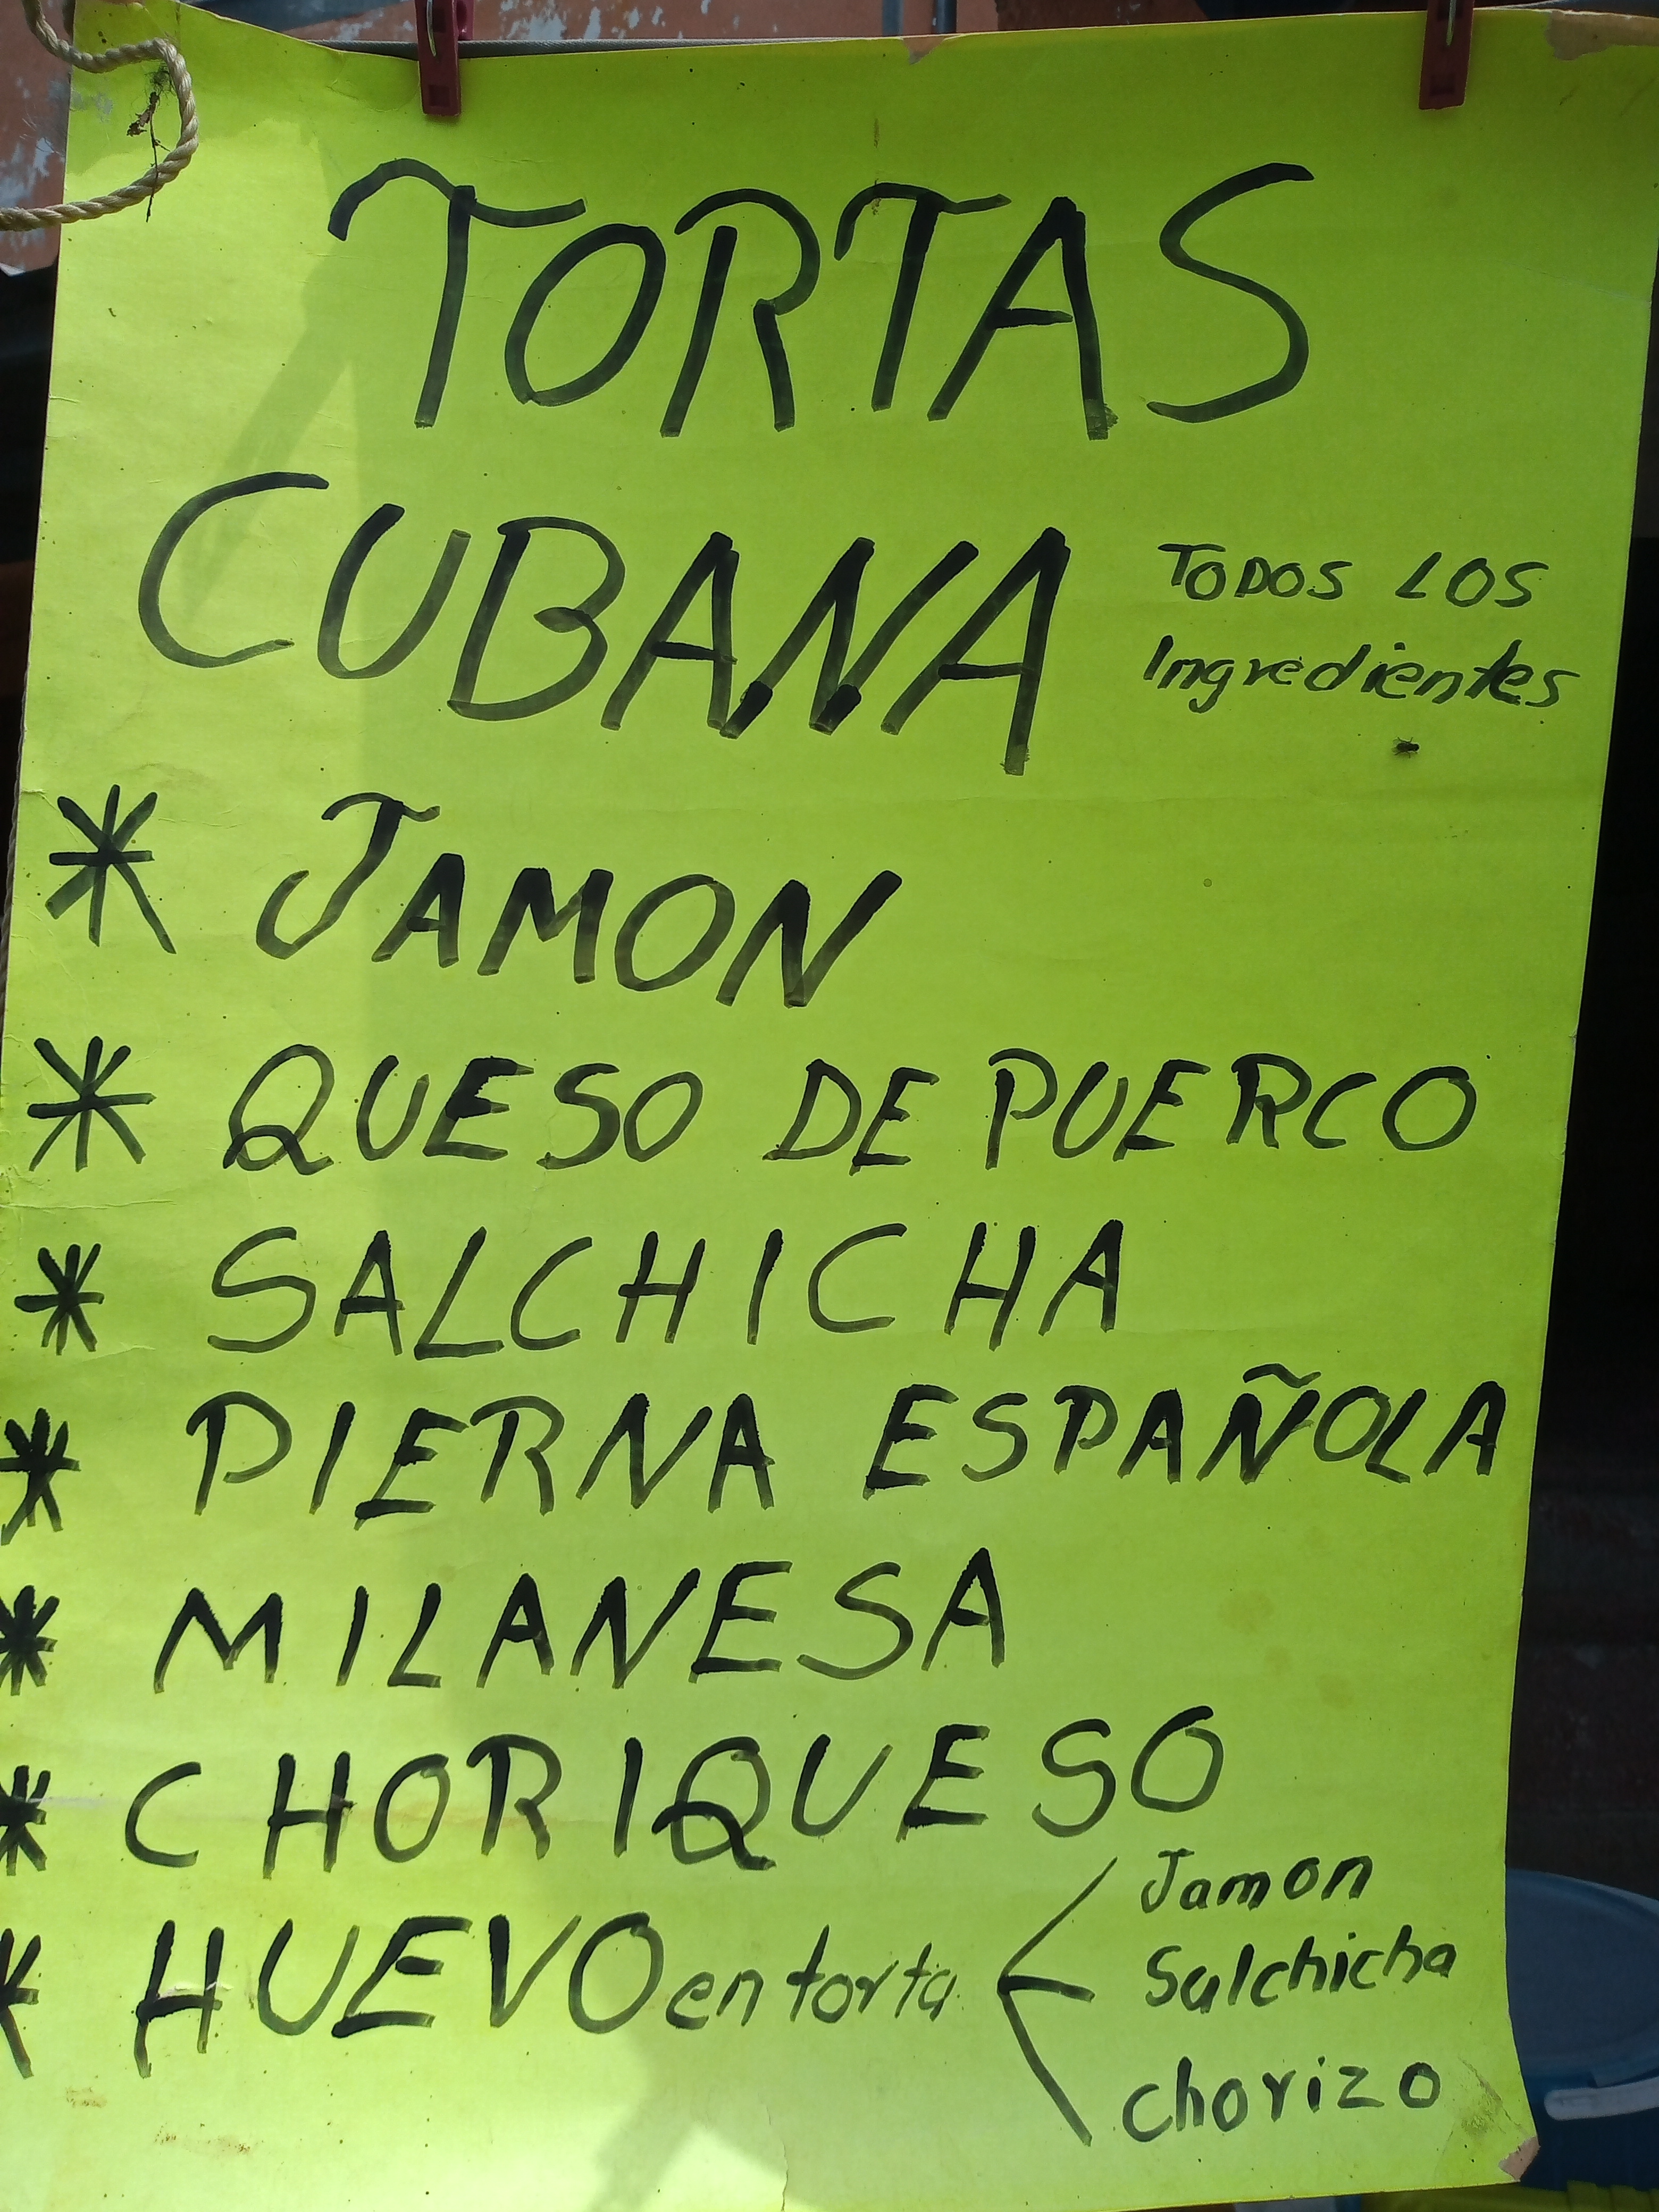 TORTAS
CUBANA TODOS LOS
Ingredientes
* JAMON
* QUESO DE PUERCO
* SALCHICHA
* PIERNA ESPAÑOLA
* MILANESA
* CHORIQUESO
* HUEVO en torta
Jamon
Salchicha
chorizo